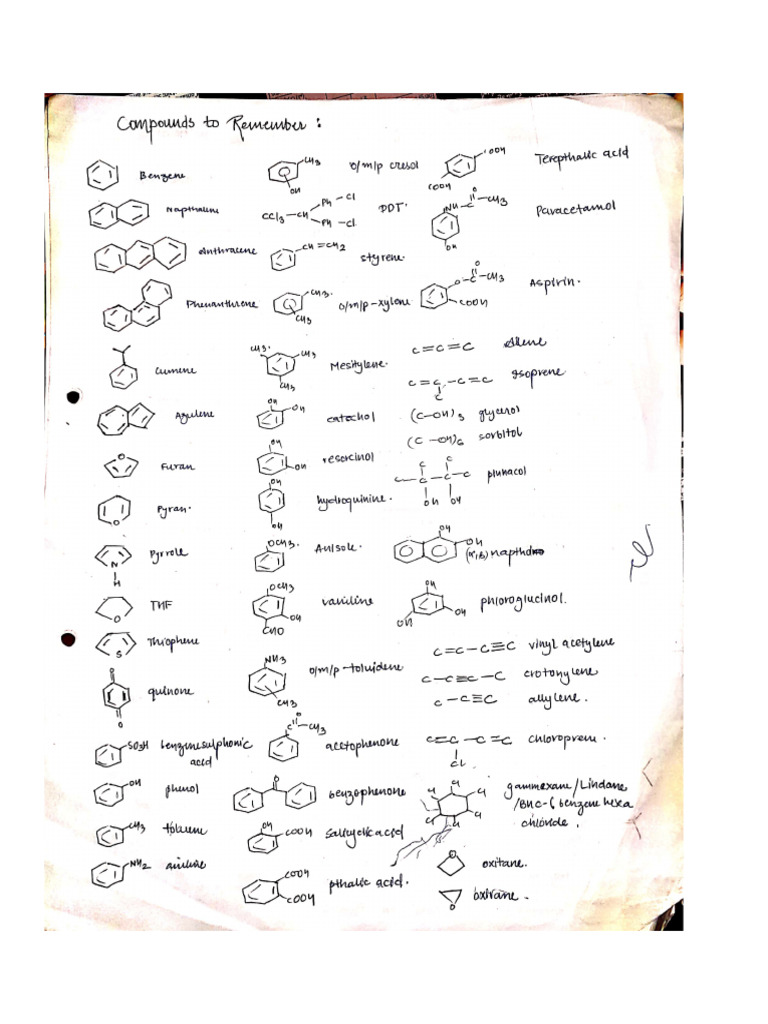 Compounds to Remember :
Benzene
Napthalene
Anthracene
Phenanthrene
Cumene
Azulene
O
Furan
O
Pyran.
N
H
Pyrrole
O
THF
S
Thiophene
O
O
quinone
SO3H benzenesulphonic
acid
OH phenol
CH3 toluene
NH2 aniline
CH3
OH
o/m/p cresol
CCl3 - CH
Ph - Cl
Ph - Cl.
DDT.
CH = CH2
styrene.
CH3.
CH3
o/m/p-xylene
CH3.
CH3
CH3
Mesitylene.
OH
OH
catechol
OH
OH
resorcinol
OH
OH
hydroquinine.
OCH3.
Anisole.
OCH3
OH
CHO
vaniline
NH3
CH3
o/m/p-toluidene
O
C - CH3
acetophenone
O
benzophenone
OH
COOH
salicylic acid
COOH
COOH
pthalic acid.
COOH
COOH
Terepthalic acid
O
NH - C - CH3
OH
Paracetamol
O
O - C - CH3
COOH
Aspirin.
C = C = C
allene
C = C - C = C
C
Isoprene
(C-OH)3 glycerol
(C-OH)6 sorbitol
C C
C - C - C - C
OH OH
pinnacol
OH
OH
(α,β) napthol
OH
OH
OH
phloroglucinol.
C=C-C≡C vinyl acetylene
C-C≡C-C crotonylene
C-C≡C allylene.
C=C-C=C
Cl
chloroprene.
Cl Cl
Cl Cl
Cl Cl
gammexane/Lindane
/BHC-6 benzene hexa
chloride.
O
oxitane.
O
oxirane.